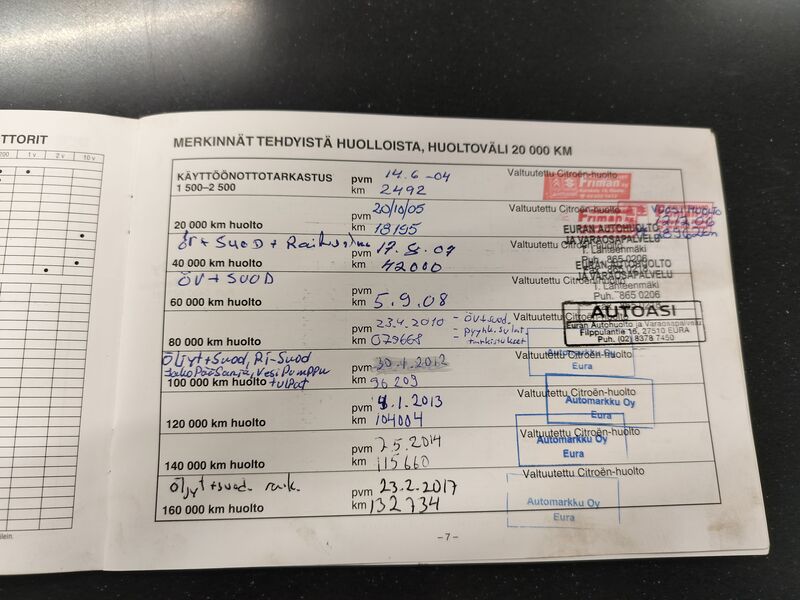 TTORIT
200 1 v. 2 v. 10 v.
MERKINNÄT TEHDYISTÄ HUOLLOISTA, HUOLTOVÄLI 20 000 KM
KÄYTTÖÖNOTTOTARKASTUS pvm 14.6 -04 Valtuutettu Citroën-huolto
1 500–2 500 km 2492 Friman Oy
pvm 20/10/05 Valtuutettu Citroën-huolto
20 000 km huolto km 18195 Friman
VUOSIHUOLTO
EURAN AUTOHUOLTO
JA VARAOSAPALVELU
T. Lähteenmäki
Puh. 865 0206
ÖV + SUOD + pvm
40 000 km huolto km 42000
EURAN AUTOHUOLTO
JA VARAOSAPALVELU
T. Lähteenmäki
Puh. 865 0206
ÖV + SUOD pvm
60 000 km huolto km 5.9.08
pvm 23.4.2010 - öv+suod. Valtuutettu Citroën-huolto
80 000 km huolto km 079668
tarkistukset
AUTOASI
Euran Autohuolto ja Varaosapalvelu
Filppulantie 16, 27510 EURA
Puh. (02) 8378 7450
Öljyt+Suod, Ri-Suod pvm 30.4.2012 Valtuutettu Citroën-huolto
JakoPääSarja, VesiPumppu
100 000 km huolto +tulpat km 96209
Automarkku Oy
Eura
pvm 1.2013 Valtuutettu Citroën-huolto
120 000 km huolto km 104004
Automarkku Oy
Eura
pvm 7.5.2014 Valtuutettu Citroën-huolto
140 000 km huolto km 115660
Automarkku Oy
Eura
Öljyt+suod. raik. pvm 23.2.2017 Valtuutettu Citroën-huolto
160 000 km huolto km 132734
Automarkku Oy
Eura
– 7 –